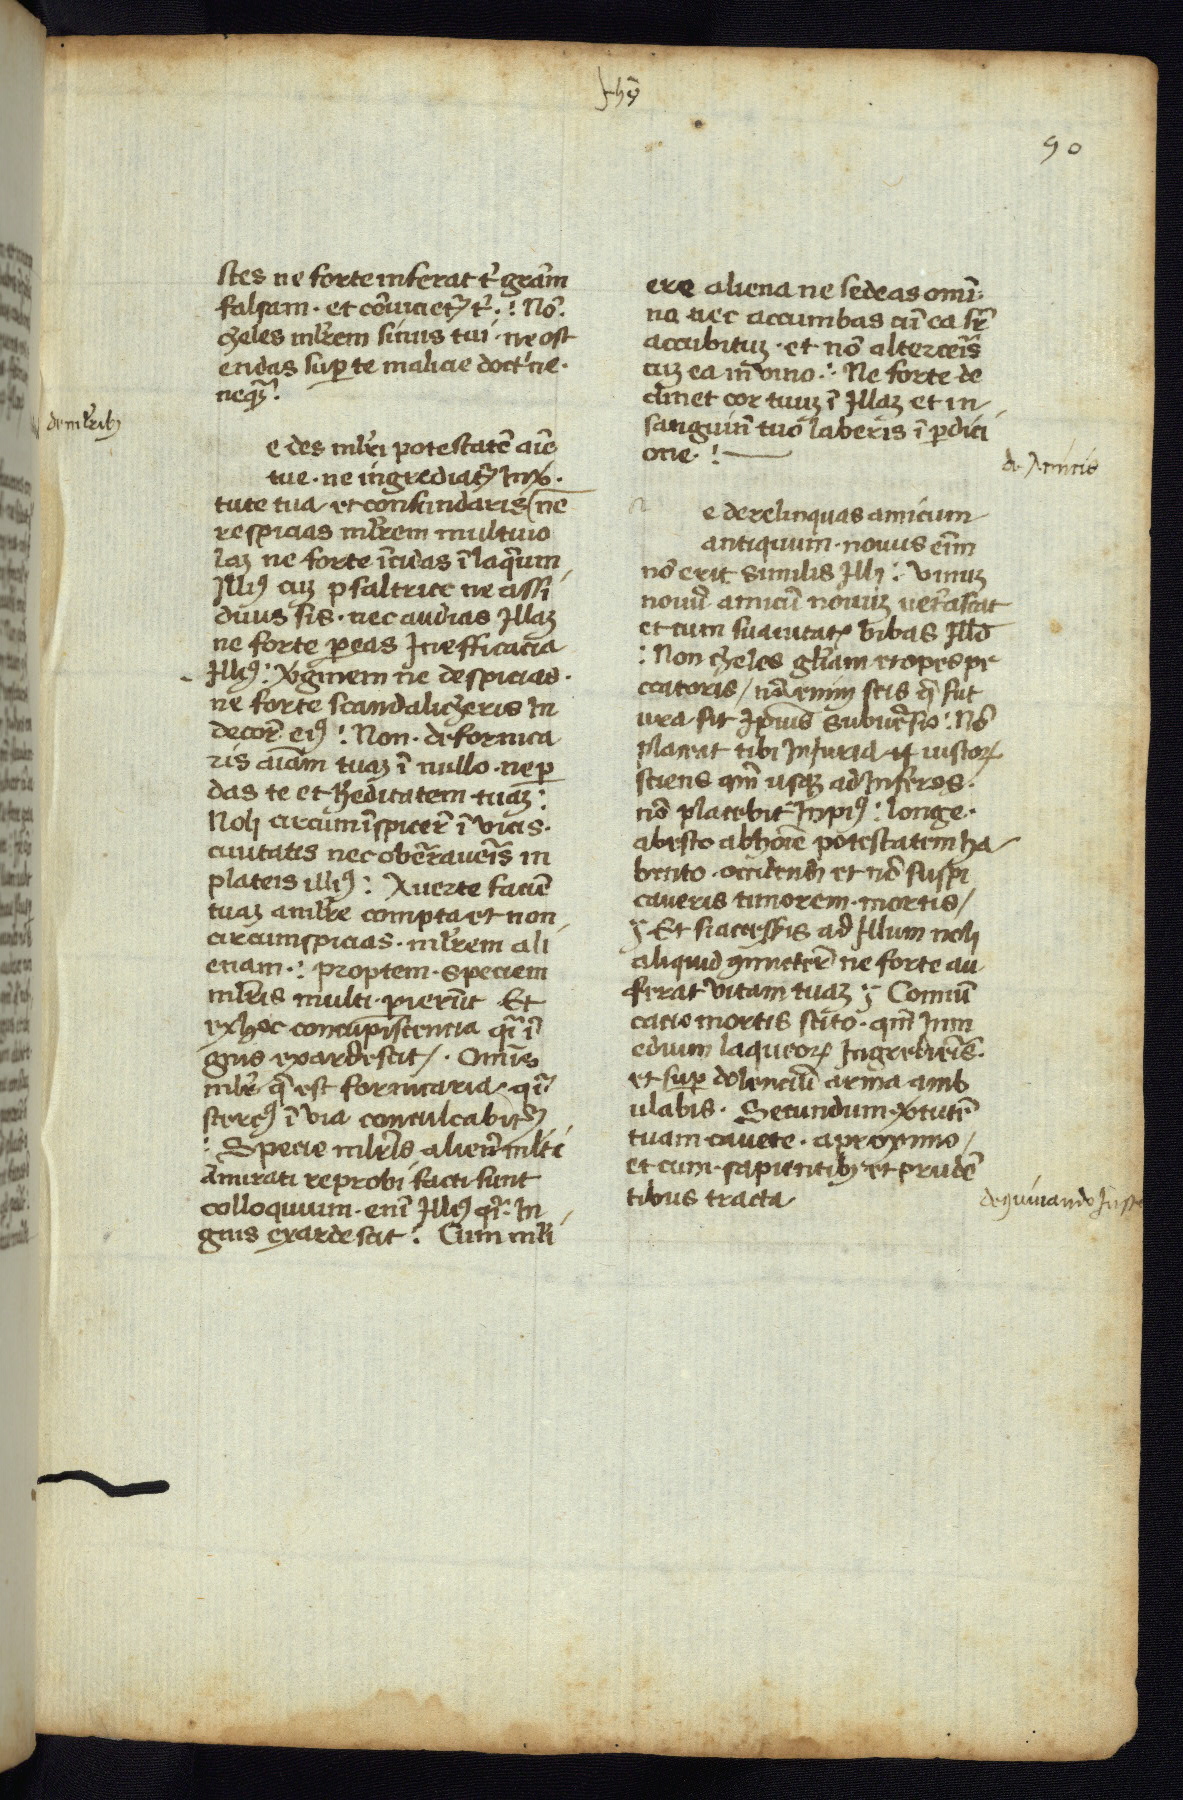 Jhỹ
90
stes ne forte inferat t' grãm
falsam · et cõuicietʳ t' · : Nõ
zeles mlr̃em sinus tui · ne ost
endas sup te malicie doct'ne ·
neq̃ :
de mlr̃ib
e des mlr̃i potestatẽ aĩe
tue · ne ingrediatʳ In
tute tua et confundaris ne
respicias mlr̃em multiuo
laʒ ne forte ĩcidas ĩ laq̃um
Illi⁹ cuʒ psaltrice ne assi
duus sis · nec audias Illaʒ
ne forte peas In efficacia
Illi⁹ : Xginem ne despicias ·
ne forte scandalizeris In
decor̃ ei⁹ : Non · des fornica
ris aĩam tuaʒ ĩ nullo · ne p
das te et hereditatem tuaʒ :
Noli circumĩspicer̃ ĩ vicis ·
ciuitatis nec oberraueis̃ in
plateis illi⁹ : Auerte faciẽ
tuaʒ a mlr̃e compta et non
circumspicias · mlr̃em ali
enam · : propterm · speciem
mlr̃is multi · pierũt Et
ex hoc concupiscencia q̃i ĩ
gnis exardescit / · Omĩs
mlr̃ q̃ est fornicaria q̃i
sterc⁹ ĩ via conculcabitʳ
: Specie mlr̃is alien̄ mlti
amirati reprobi facti sunt
colloquium · enĩ Illi⁹ q̃i · In
gnis exardescit : Cum mlĩ
ere aliena ne sedeas omĩ
no nec accumbas cũ ea sr̃
accubituʒ · et nõ alterceis̃
cuʒ ea in vino · : Ne forte de
clinet cor tuuʒ ĩ Illaʒ et in
sanguinẽ tuõ laberis ĩ pdici
one · :
de Amicis
e derelinquas amicum
antiquum · nouus eĩm
nõ erit similis Illi : vinuʒ
nouũ amicũ nouuʒ vet'ascat
et cum suauitate bibas Illđ
: Non zeles glr̃iam et opes pe
ccatoris / nõ enim scis q̃ fut
ura sit Ipius̃ subuersio : Nõ
placeat tibi Iniuria iniustoꝝ
sciens qm̃ usqʒ ad Inferos ·
nõ placebit Inpi⁹ : longe ·
abesto ab hoĩe potestatem ha
bento · occidendi et nõ suspi
caueris timorem · mortis /
Et si accessis ad Illum noli
aliquid ꝯmicter̃ ne forte au
ferat vitam tuaʒ Comũi
cacio mortis scito · qm̃ Inm
edium laqueoꝝ Ingredieis̃ ·
et sup dolenciũ arma amb
ulabis · Secundum xtutẽ
tuam cauete · a proximo /
et cum · sapientibʒ et prudẽ
tibus tracta
de ꝯuiuando Iuste